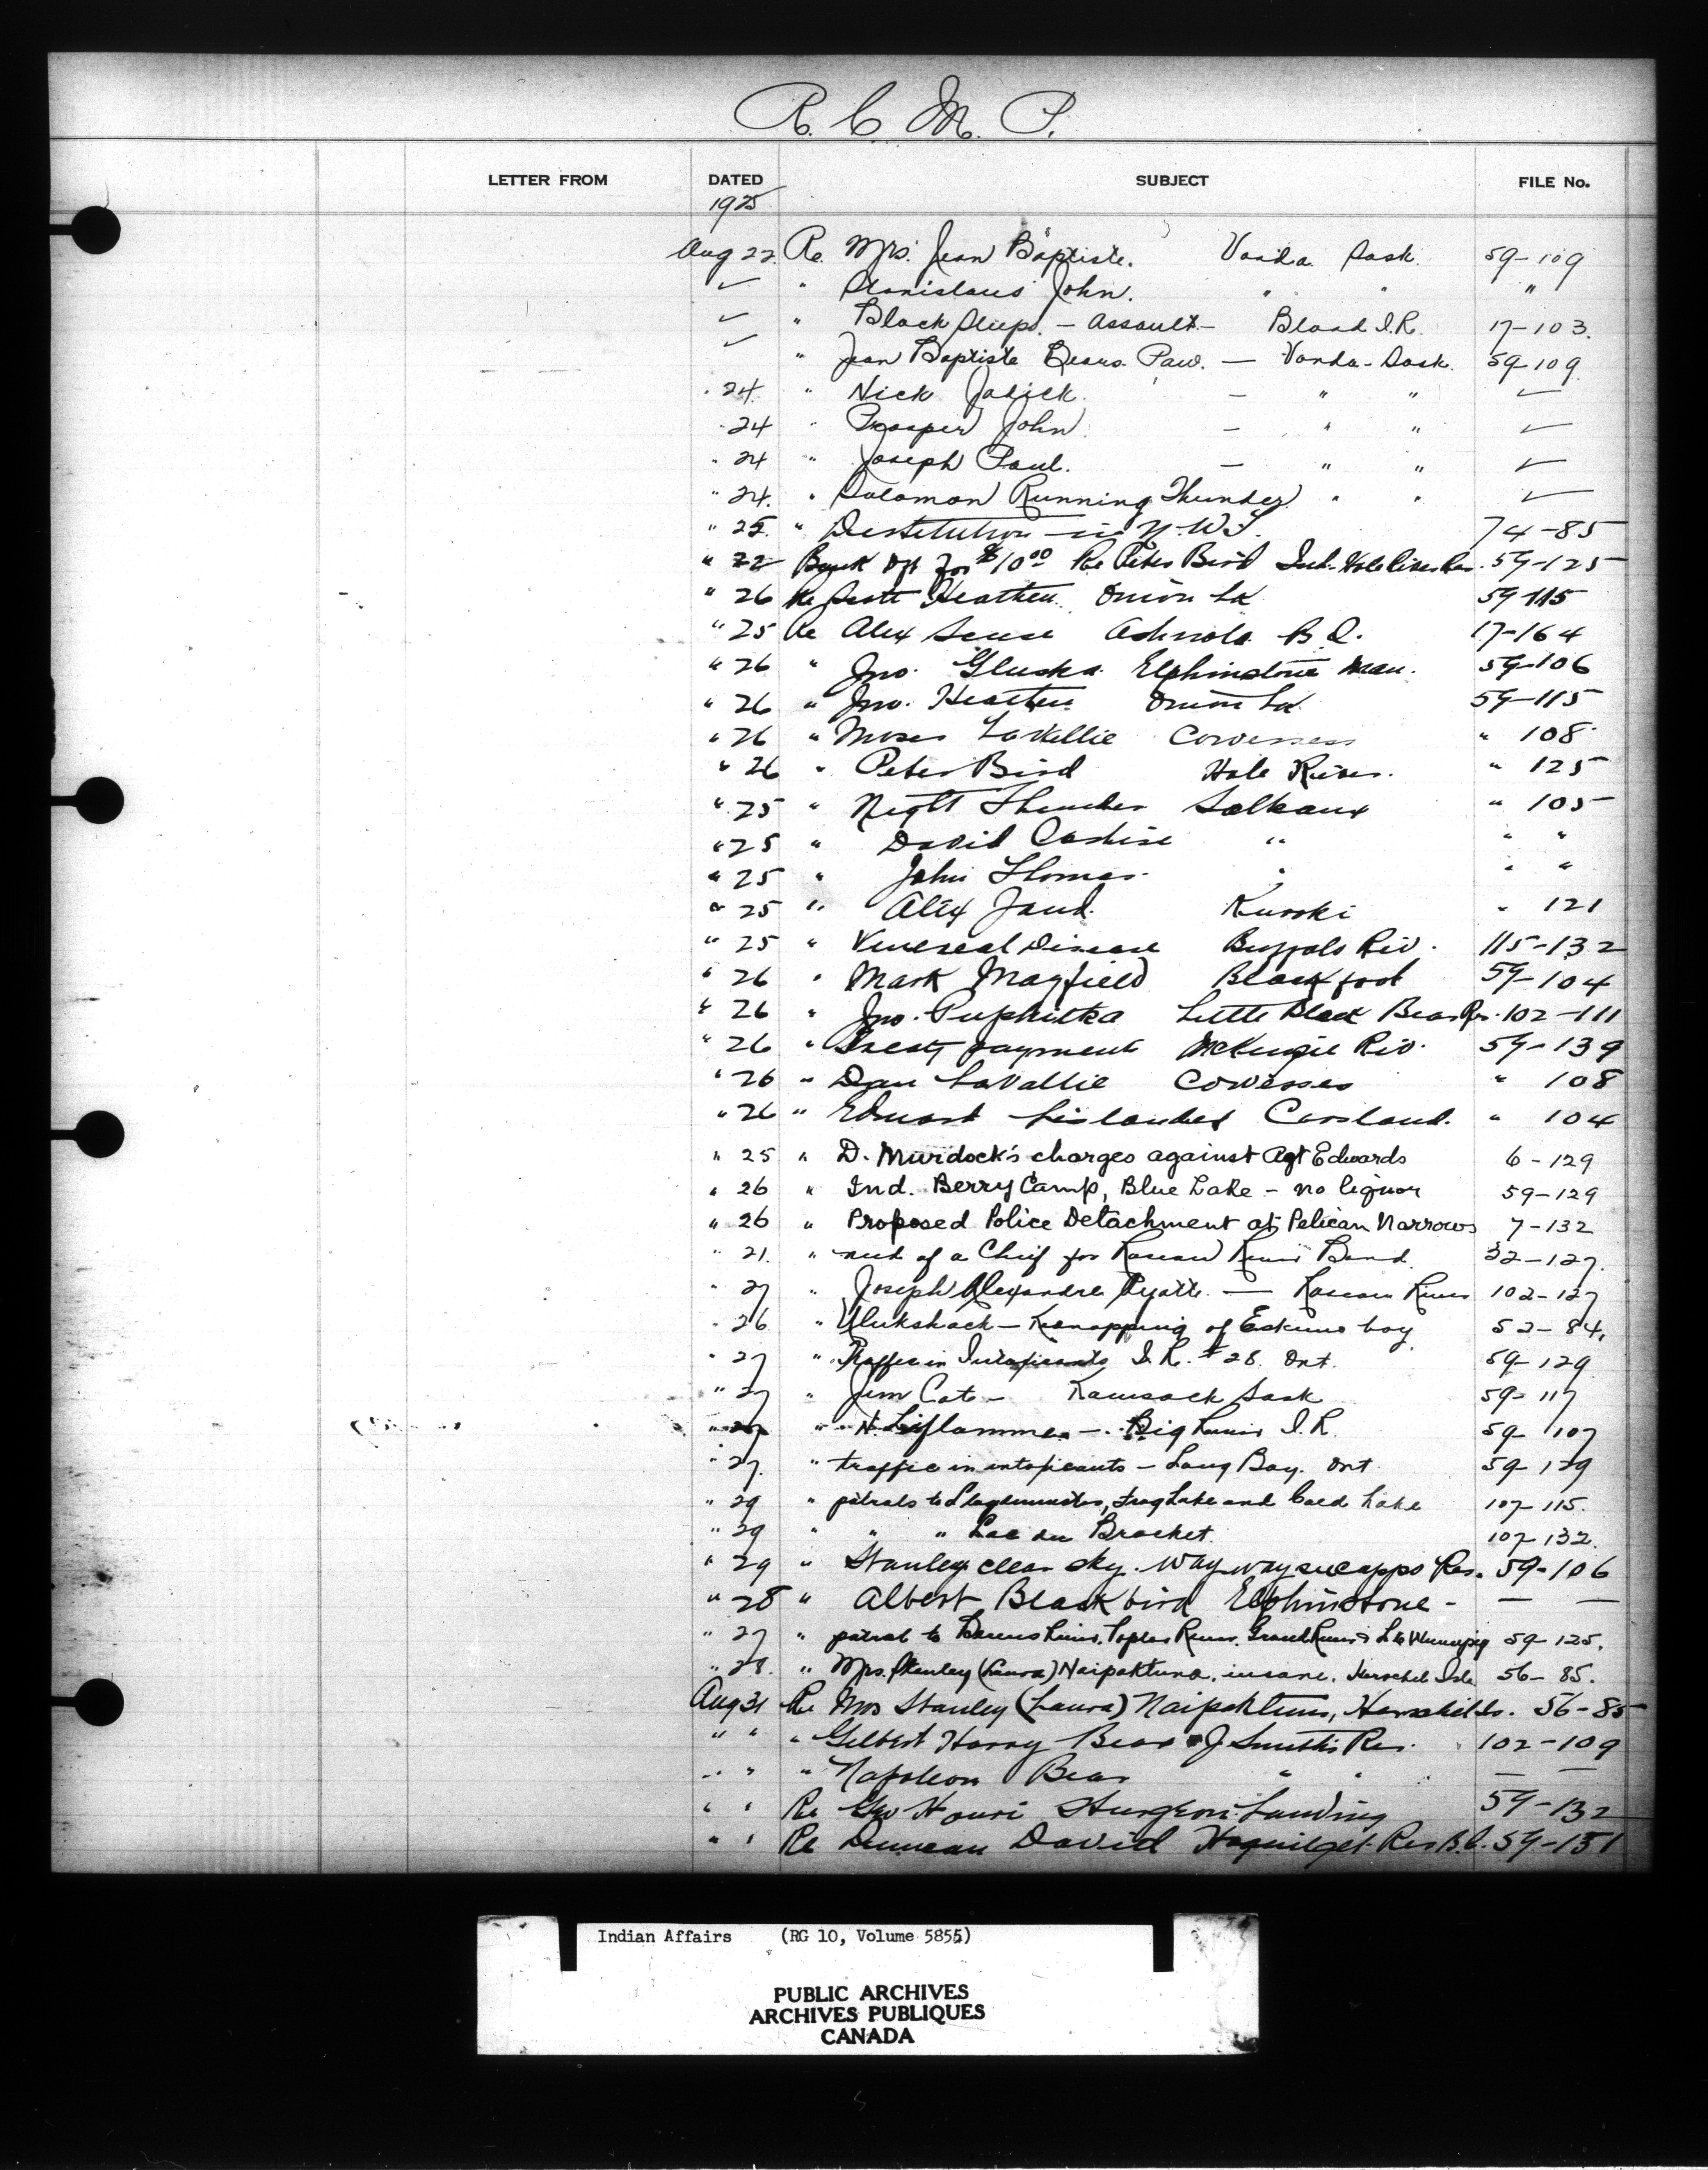 R. C. M. P.
LETTER FROM DATED SUBJECT FILE No.
1925
Aug 22. Re Mrs. Jean Baptiste. Vonda Sask. 59-109
✓ " Stanislaus John. " " "
✓ " Black Sleeps. - Assault - Blood I.R. 17-103.
✓ " Jean Baptiste Bears Paw. - Vonda - Sask. 59-109
" 24. " Nick - " " ✓
" 24 " Prosper John - " " ✓
" 24 " Joseph Paul. - " " ✓
" 24. " Solomon Running Thunder " " ✓
" 25. " Destitution in N.W.T. 74-85
" 22 Bank Dft for $10.00 Re Peter Bird Ind. Hole River Res. 59-125
" 26 Re Heathen Onion Lk 59-115
" 25 Re Alex Ashnola B.C. 17-164
" 26 " Jno. Gluska Elphinstone Man. 59-106
" 26 " Jno. Heathen Onion Lk 59-115
" 26 " Moses LaVellie Cowesses " 108
" 26 " Peter Bird Hole River. " 125
" 25 " Night Thunder Salteaux " 105
" 25 " David " " "
" 25 " John Thomas. " " "
" 25 " Alex Kuroki " 121
" 25 " Venereal Disease Buffalo Riv. 115-132
" 26 " Mark Mayfield Blackfoot 59-104
" 26 " Jno. Little Black Bear Res. 102-111
" 26 " Treaty payment McKenzie Riv. 59-139
" 26 " Dan LaVallie Cowesses " 108
" 26 " " 104
" 25 " D. Murdock's charges against Agt Edwards 6-129
" 26 " Ind. Berry Camp, Blue Lake - no liquor 59-129
" 26 " Proposed Police Detachment at Pelican Narrows 7-132
" 21. " need of a Chief for Roseau River Band 32-127.
" 27 " Joseph Alexandre - Roseau River 102-127
" 26 " - Kidnapping of Eskimo boy 52-84.
" 27 " Traffic in Intoxicants I.R. #28. Ont. 59-129
" 27 " Jim Cote - Kamsack Sask 59-117
" 27 " N. Liflamme - Big River I.R. 59-107
" 27. " traffic in intoxicants - Long Bay. Ont. 59-129
" 29 " patrols to Frog Lake and Cold Lake 107-115.
" 29 " " " Lac du Brochet. 107-132.
" 29 " Stanley Clear Sky. Way way seecappo Res. 59-106
" 28 " Albert Blackbird Elphinstone - — —
" 27 " patrol to Berens River, Poplar River, Grand River & Lk Winnipeg 59-125.
" 28. " Mrs. Stanley (Laura) Naipaktuna, insane, Herschel Isle 56-85.
Aug 31 Re Mrs Stanley (Laura) Naipaktuna, Herschel Is. 56-85
" " " Gilbert Harry Bear J Smith's Res. 102-109
" " " Napoleon Bear " " — —
" " Re Geo Houri Sturgeon Landing 59-132
" " Re Duncan David Hagwilget Res B.C. 59-151
Indian Affairs (RG 10, Volume 5855)
PUBLIC ARCHIVES
ARCHIVES PUBLIQUES
CANADA